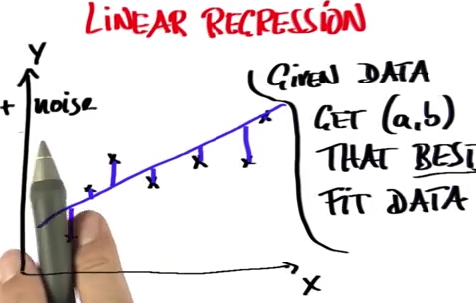 LINEAR REGRESSION
Y
+ noise
GIVEN DATA
GET (a,b)
THAT BEST
FIT DATA
X